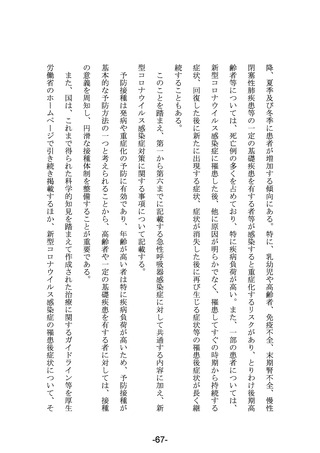 降、夏季及び冬季に患者が増加する傾向にある。特に、乳幼児や高齢者、免疫不全、末期腎不全、慢性
閉塞性肺疾患等の一定の基礎疾患を有する者等が感染すると重症化するリスクがあり、とりわけ後期高
齢者等については、死亡例の多くを占めており、特に疾病負荷が高い。また、一部の患者については、
新型コロナウイルス感染症に罹患した後、他に原因が明らかでなく、罹患してすぐの時期から持続する
症状、回復した後に新たに出現する症状、症状が消失した後に再び生じる症状等の罹患後症状が長く継
続することもある。
このことを踏まえ、第一から第六までに記載する急性呼吸器感染症に対して共通する内容に加え、新
型コロナウイルス感染症対策に関する事項について記載する。
予防接種は発病や重症化の予防に有効であり、年齢が高い者は特に疾病負荷が高いため、予防接種が
基本的な予防方法の一つと考えられることから、高齢者や一定の基礎疾患を有する者に対しては、接種
の意義を周知し、円滑な接種体制を整備することが重要である。
また、国は、これまで得られた科学的知見を踏まえて作成された治療に関するガイドライン等を厚生
労働省のホームページで引き続き掲載するほか、新型コロナウイルス感染症の罹患後症状について、そ
-67-